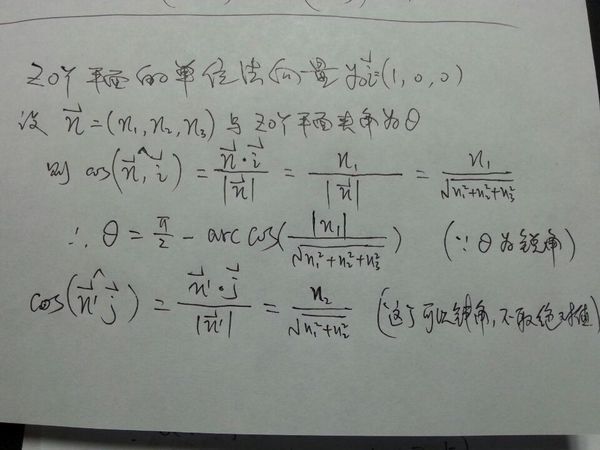 ZOY平面的单位法向量为i⃗=(1,0,0)
设 n⃗=(n₁,n₂,n₃)与ZOY平面夹角为θ
则 cos(n⃗,i⃗) = n⃗·i⃗/|n⃗| = n₁/|n⃗| = n₁/√(n₁²+n₂²+n₃²)
∴ θ = π/2 - arccos(|n₁|/√(n₁²+n₂²+n₃²)) (∵ θ为锐角)
cos(n⃗' j⃗) = n⃗'·j⃗/|n⃗'| = n₂/√(n₁²+n₂²) (这个可以钝角,不取绝对值)